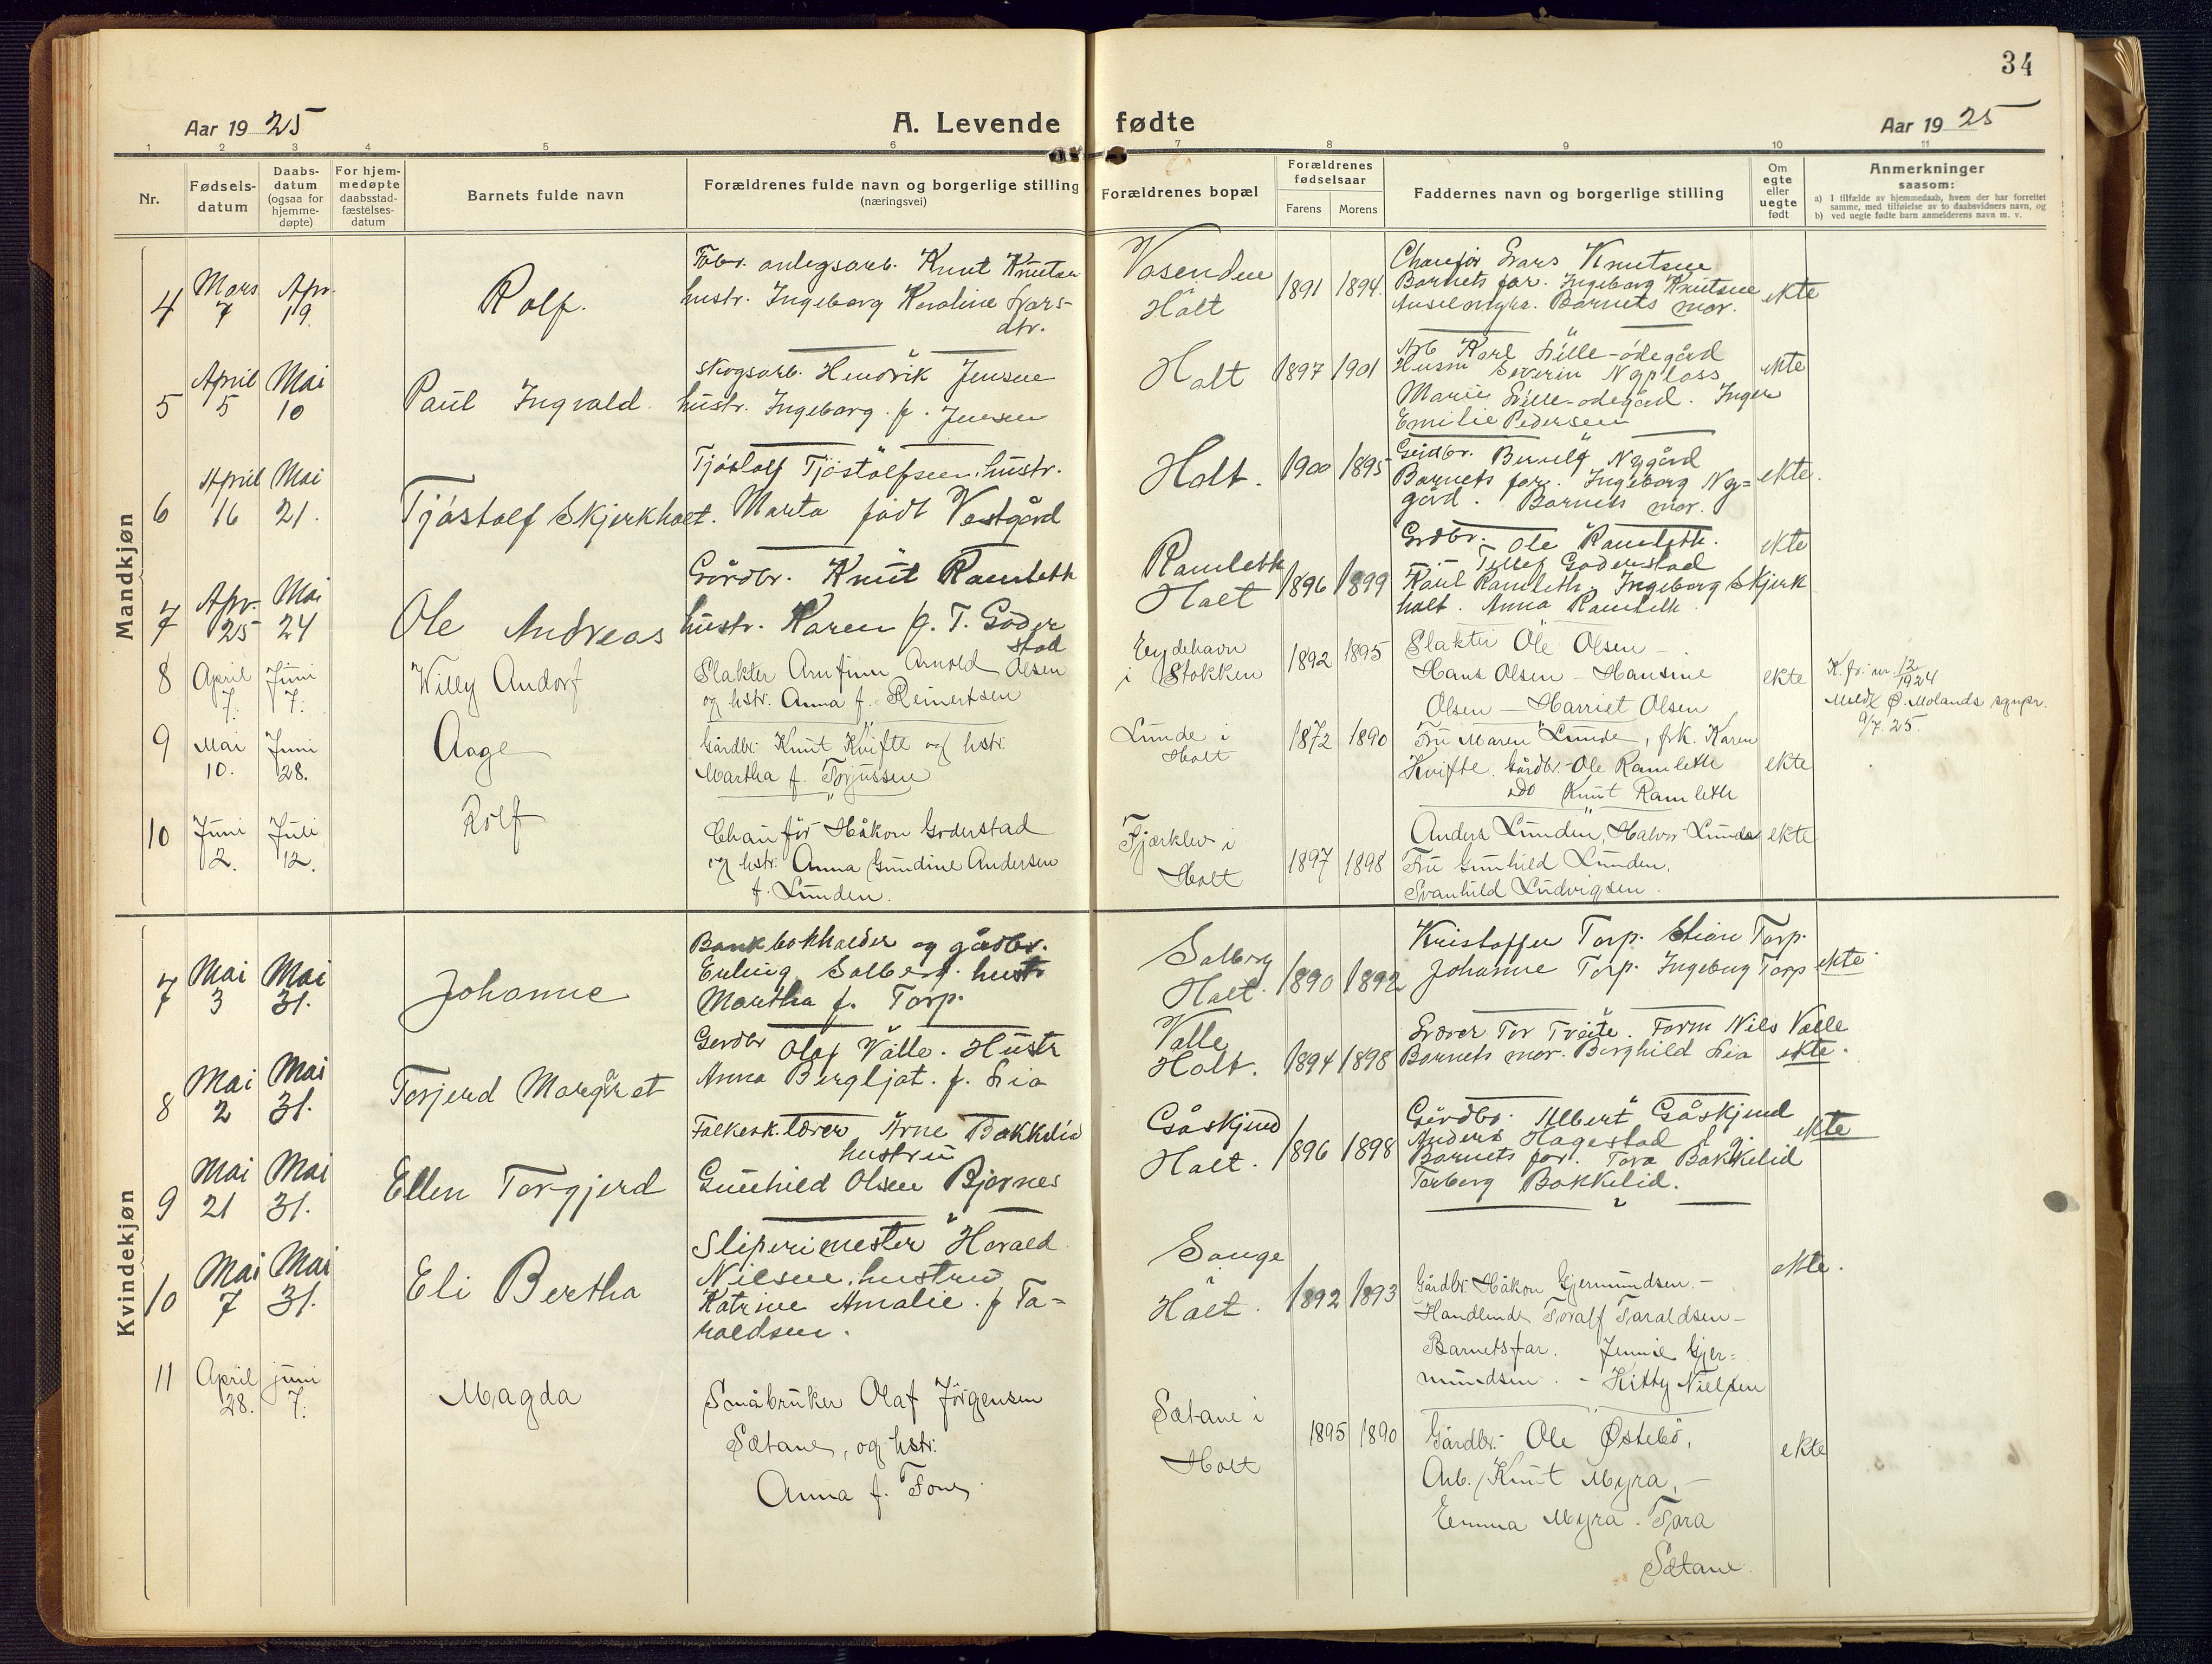 34
Aar 1925
A. Levende fødte
Aar 1925
1 2 3 4 5 6 7 8 9 10 11
Nr.
Fødsels-
datum
Daabs-
datum
(ogsaa for
hjemme-
døpte)
For hjem-
medøpte
daabsstad-
fæstelses-
datum
Barnets fulde navn
Forældrenes fulde navn og borgerlige stilling
(næringsvei)
Forældrenes bopæl
Forældrenes
fødselsaar
Farens Morens
Faddernes navn og borgerlige stilling
Om
egte
eller
uegte
født
Anmerkninger
saasom:
a) I tilfælde av hjemmedaab, hvem der har forrettet
samme, med tilføielse av to daabsvidners navn, og
b) ved uegte fødte barn anmelderens navn m. v.
Mandkjøn
4
Mars
7
Apr.
19.
Rolf.
Fabr. anlegsarb. Knut Knutsen
hustr. Ingeborg Karoline Lars-
dtr.
Vasenden
Holt
1891 1894.
Chaufør Lars Knutsen
Barnets far. Ingeborg Knutsen
Barnets mor.
ekte
5
April
5
Mai
10
Paul Ingvald.
Skogsarb. Hendrik Jensen
hustr. Ingeborg. f. Jensen
Holt
1897 1901
Arb Karl Lille-ødegård
Husm Severin Nyplass
Marie Lille-ødegård. Inger
Emilie Pedersen
ekte
6
April
16
Mai
21.
Tjøstolf Skjerkholt.
Tjøstolf Tjøstolfsen. hustr.
Marta født Vestgård
Holt.
1900 1895
Nygård
Barnets far. Ingeborg Ny=
gård. Barnets mor.
ekte.
7
Apr.
25
Mai
24
Ole Andreas
Gårdbr. Knut Ramleth
hustr. Karen f. T. Goder
stad
Ramleth
Holt
1896 1899
Grdbr. Ole Ramleth.
Tellef Goderstad
Karl Ramleth. Ingeborg Skjerk
holt. Anna Ramleth
ekte
8
April
7.
Juni
7.
Willy Andorf
Slakter Arnfinn Arnold Olsen
og hstr. Anna f. Reinertsen
Eydehavn
i Stokken
1892 1895
Slakter Ole Olsen -
Hans Olsen - Hansine
Olsen - Harriet Olsen
ekte
K. fr. nr. 12/1924
Meldt Ø. Molands sgnpr.
9/7. 25.
9
Mai
10.
Juni
28.
Aage
Gårdbr. Knut Kvifte og hstr.
Martha f. Torjussen
Lunde i
Holt
1872 1890
Fru Maren Lunde, frk. Karen
Kvifte. Gårdbr. Ole Ramleth
do Knut Ramleth
ekte
10
Juni
2.
Juli
12.
Rolf
Chaufför Håkon Goderstad
og hstr. Anna Gundine Andersen
f. Lunden.
Fjærklev i
Holt
1897 1898
Anders Lunden, Halvor Lunden
Fru Gunhild Lunden.
Svanhild Ludvigsen.
ekte
Kvindekjøn
7
Mai
3
Mai
31.
Johanne
Bankbokholder og gårdbr.
Erling Solberg. hustr
Martha f. Torp.
Solberg
Holt.
1890 1892
Kristoffer Torp. Stian Torp.
Johanne Torp. Ingeborg Torp
ekte
8
Mai
2
Mai
31.
Torjerd Margaret
Gårdbr Olaf Valle. Hustr
Anna Bergljot. f. Lia
Valle
Holt.
1894 1898
Lærer Tor Tveite. Form Nils Valle
Barnets mor. Borghild Lia
ekte.
9
Mai
21
Mai
31.
Ellen Torgjerd
Folkesk. lærer Arne Bakkelid
hustru
Gunhild Olsen Bjørnes
Gåskjend
Holt.
1896 1898
Gårdbr. Albert Gåskjend
Anders Hagestad
Barnets far. Tora Bakkelid
Torborg Bakkelid.
ekte
10
Mai
7
Mai
31.
Eli Bertha
Sliperimester Harald
Nielsen. hustru
Katrine Amalie. f Ta=
raldsen.
Songe
Holt.
1892 1893
Gårdbr. Håkon Gjermundsen. -
Handlende Toralf Taraldsen -
Barnetsfar. Jennie Gjer=
mundsen. - Kitty Nielsen
ekte.
11
April
28.
juni
7.
Magda
Småbruker Olaf Jörgensen
Sætane, og hstr.
Anna f. Fone
Sætane i
Holt
1895 1890
Gårdbr. Ole Østebö,
Arb. Knut Myra, -
Emma Myra. Tora
Sætane.
ekte